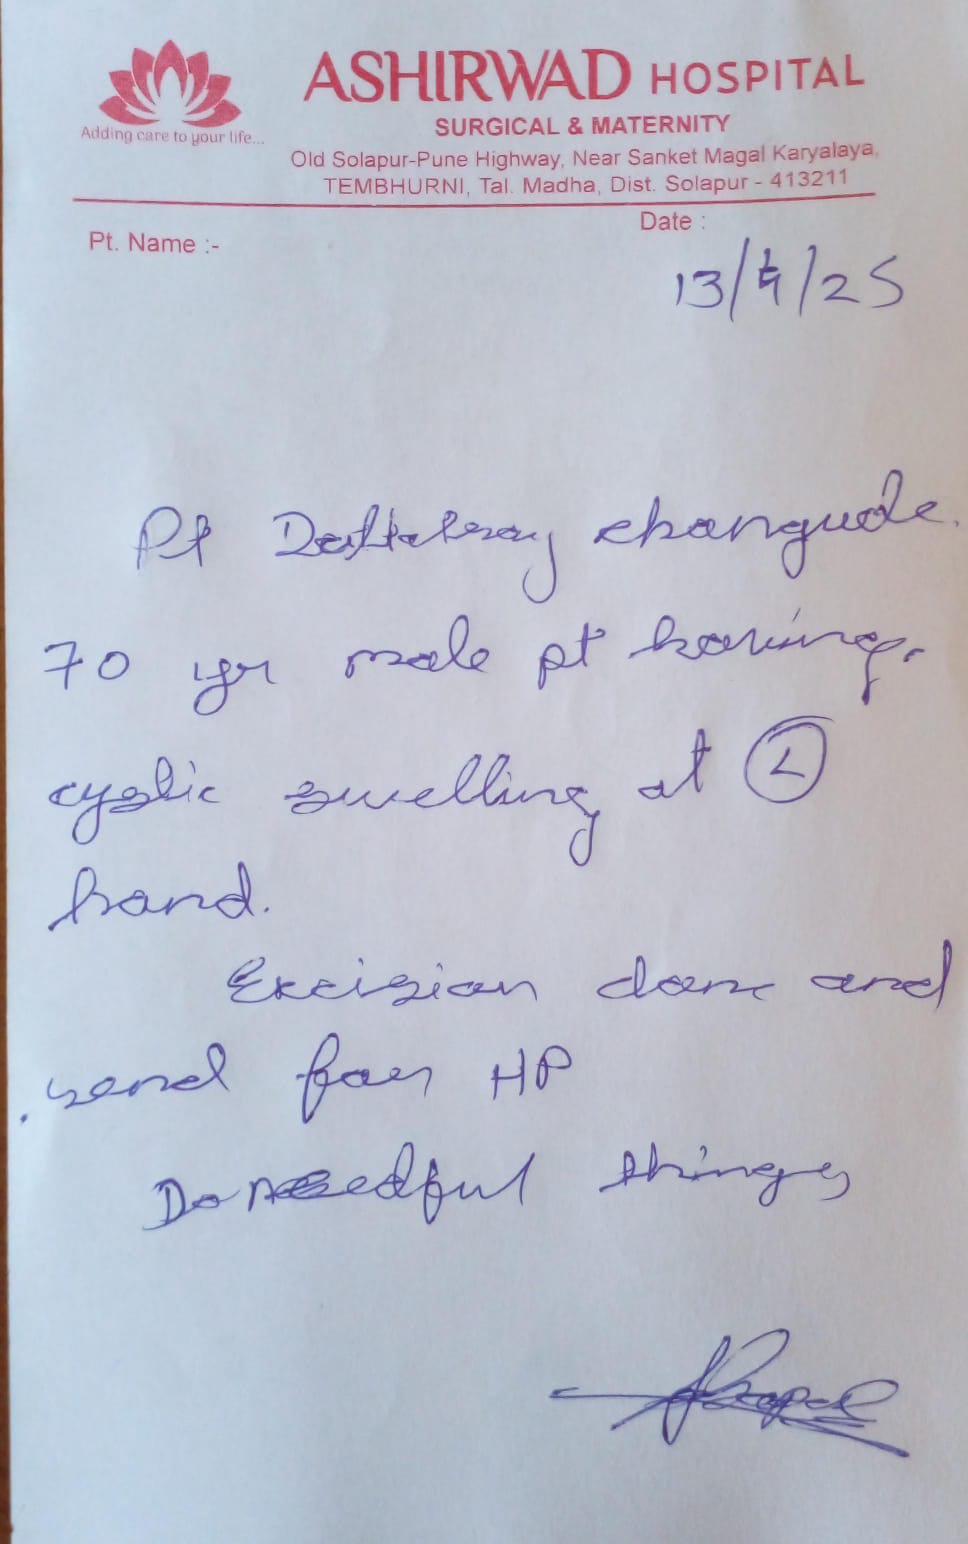 Adding care to your life...
ASHIRWAD HOSPITAL
SURGICAL & MATERNITY
Old Solapur-Pune Highway, Near Sanket Magal Karyalaya,
TEMBHURNI, Tal. Madha, Dist. Solapur - 413211
Date :
Pt. Name :-
13/4/25
Pt Dattatray changude.
70 yr male pt having
cystic swelling at L
hand.
Excision done and
send for HP
Do needful things